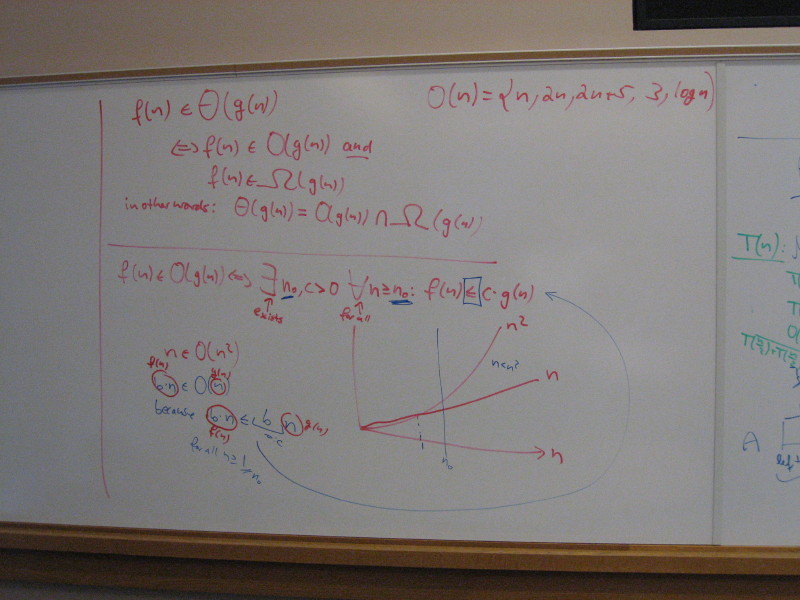 f(n) ∈ Θ(g(n))
⇔ f(n) ∈ O(g(n)) and
f(n) ∈ Ω(g(n))
in other words: Θ(g(n)) = O(g(n)) ∩ Ω(g(n))
O(n) = {n, 2n, 2n+5, 3, log n}
f(n) ∈ O(g(n)) ⇔ ∃ n₀, c > 0 ∀ n ≥ n₀: f(n) ≤ c · g(n)
exists
for all
n ∈ O(n²)
f(n) g(n)
6·n ∈ O(n)
because 6·n ≤ 6 n g(n)
f(n) = c
for all n ≥ 1
n₀
n²
n < n²
n
n
n₀
T(n):
A